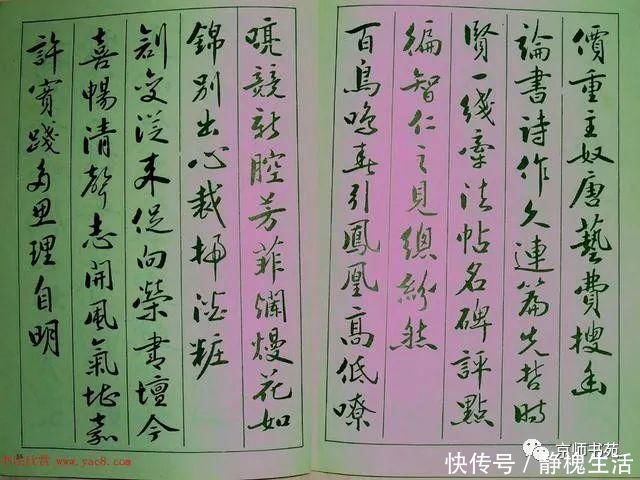 價重主奴唐藝費搜
論書詩作久連篇先哲時
賢一綫牽法帖名碑評點
徧智仁之見總紛然
百鳥鳴春引鳳凰高低嘹
喨競新腔芳菲爛熳花如
錦別出心裁掃粧
創變從來促向榮書壇今
喜暢清聲志開風氣堪嘉
許實踐多思理自明
书法欣赏 www.yac8.com
京师书苑
快传号／静槐生活